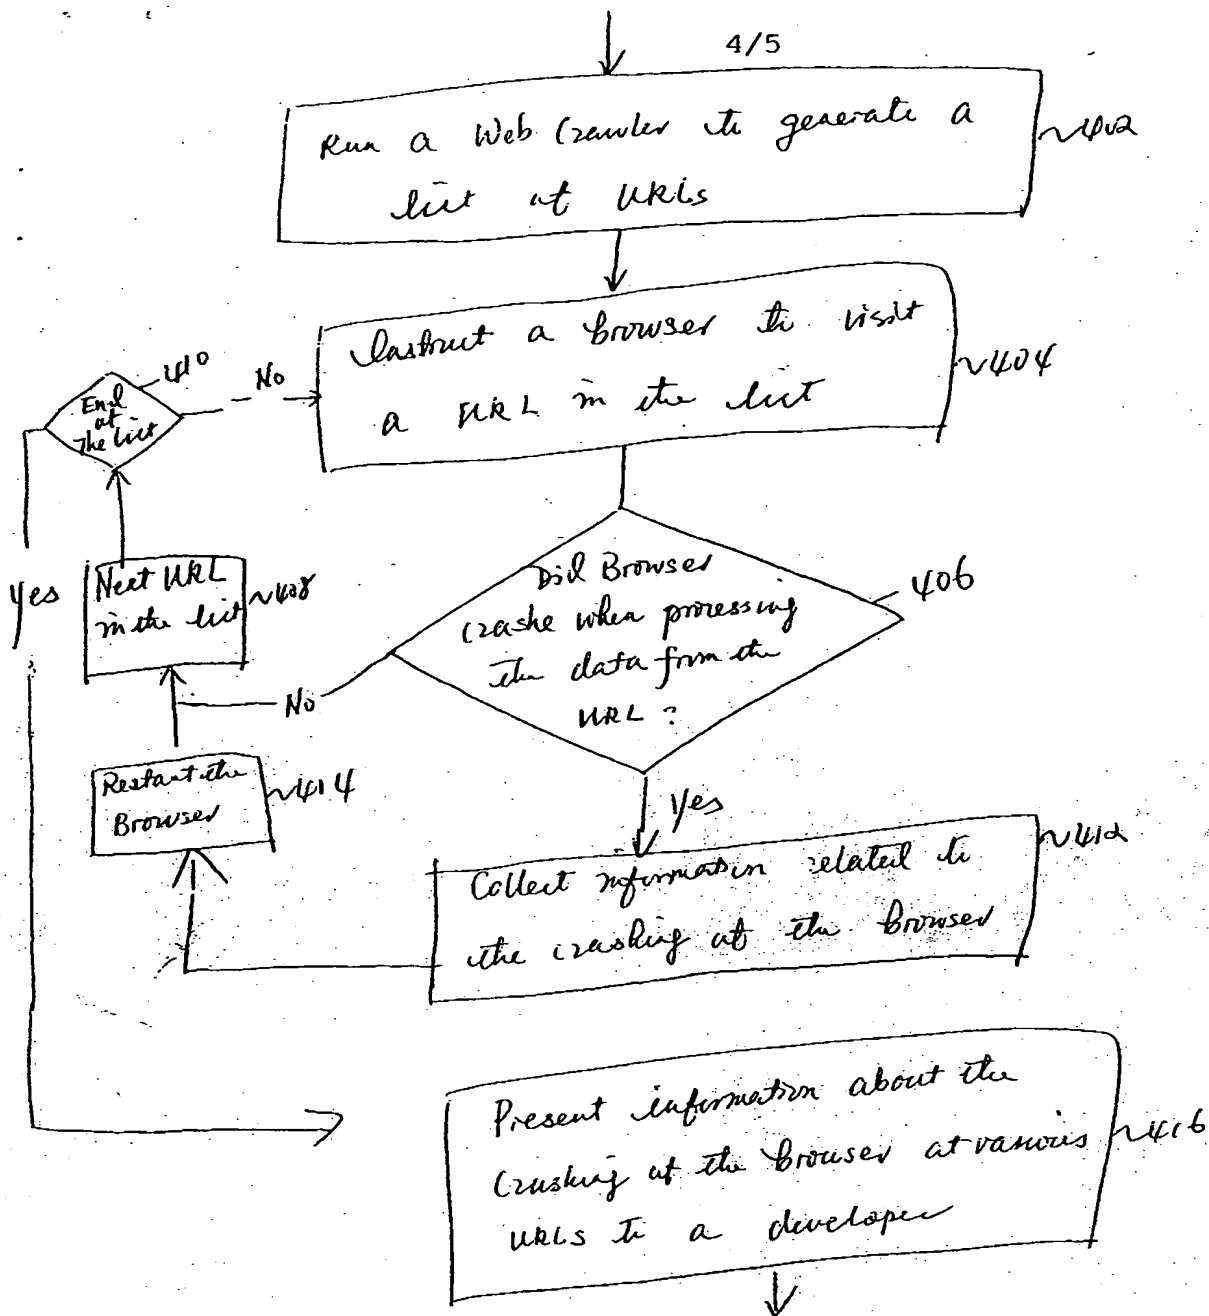 4/5
Run a Web Crawler to generate a
list of URLs
402
Instruct a browser to visit
a URL in the list
404
410
End
of
The list
No
Yes
Next URL
in the list
408
Did Browser
crashe when processing
the data from the
URL?
406
No
Restart the
Browser
414
Yes
Collect information related to
the crashing of the browser
412
Present information about the
crashing of the browser at various
URLs to a developer
416